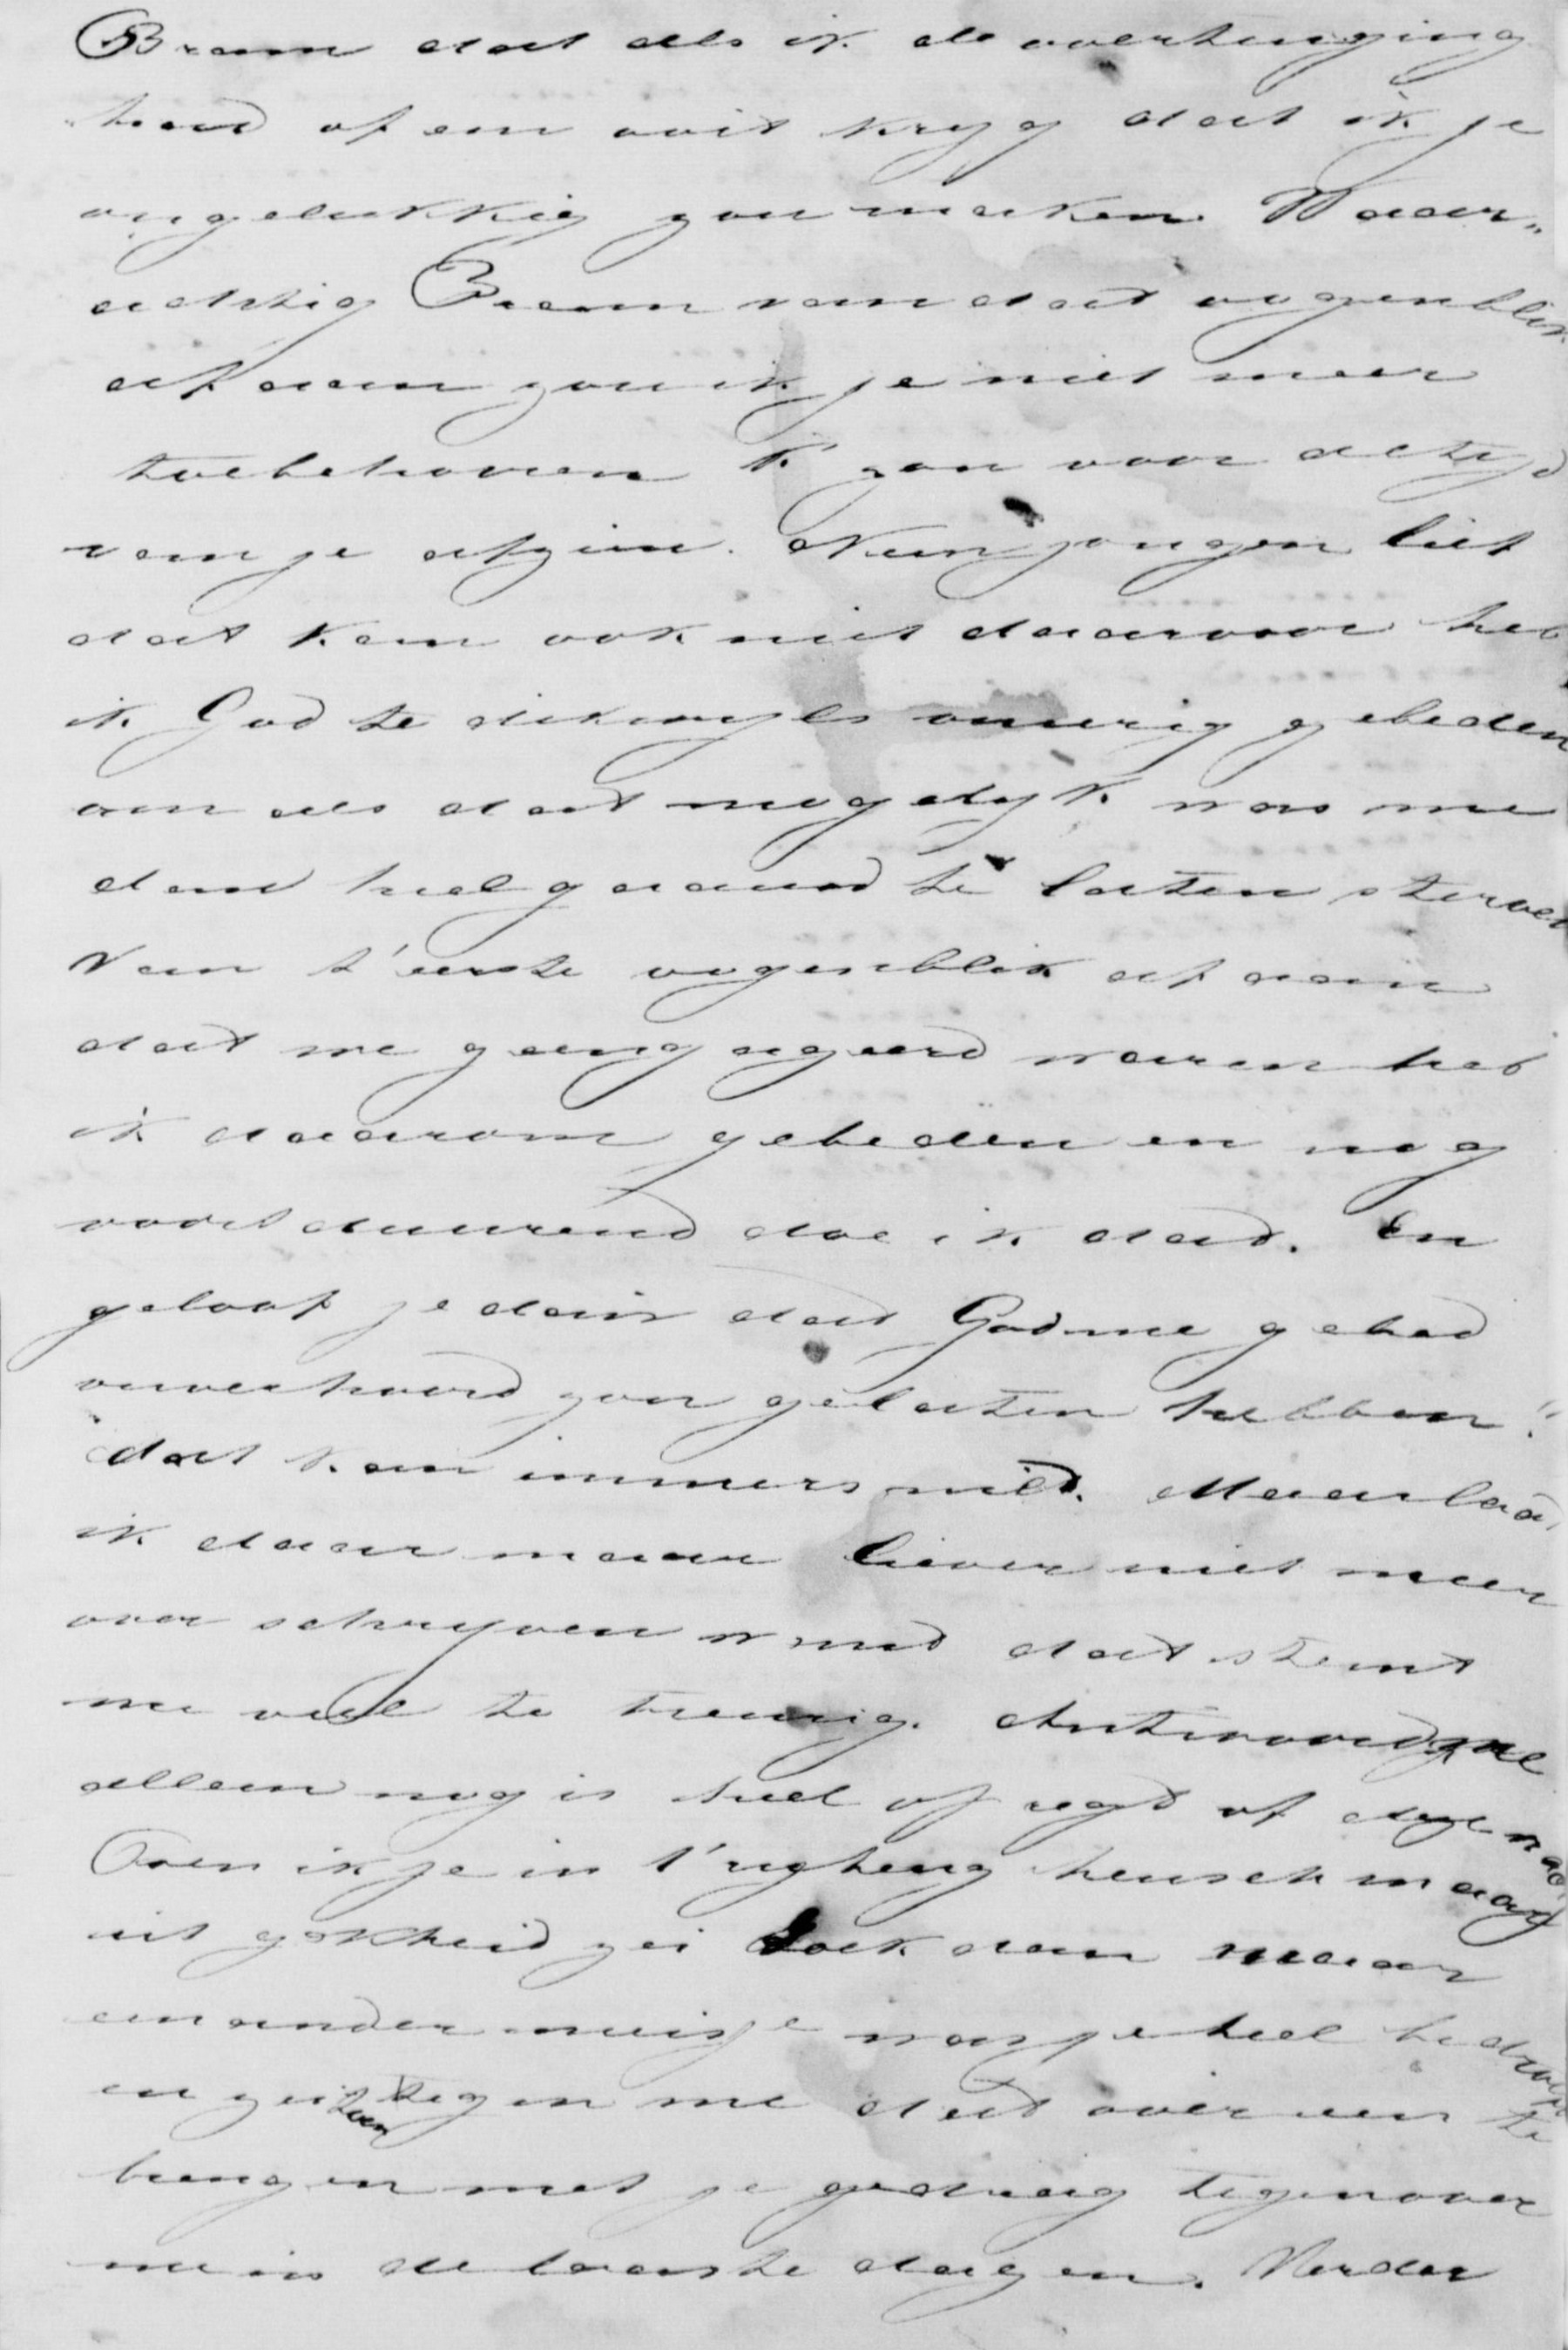 Bram dat als ik de overtuiging
had of em ooit kryg dat ik je
ongelukkig zou maken. Waar„
achtig Bram van dat oogenblik
af aan zou ik je niet meer
toebehooren k' zou voor altyd
van je afzien. Neen jongen lief
dat kan ook niet daarvoor heb
ik God te dikwyls innig gebeden
om als dat mogelyk was me
dan heel gaauw te laten sterven
Van t'eerste oogenblik af aan
dat we geengageerd waren heb
ik daarom gebeden en nog
voortdurend doe ik dat. En
geloof je dan dat God me gebed
onverhoord zou gelaten hebben?
dat kan immers niet. Maar laat
ik daar maar liever niet meer
over schryven want dat stemt
me veel te treurig. Antwoord me
alleen nog is heel opregt of
Toen ik je in t'rytuig heusch maar
uit gekheid zei zoek dan maar
een ander meisje was je heel bedroefd
en zei toen tegen me dat overeen te
brengen met je gedrag tegenover
me in de laatste dagen. Verder